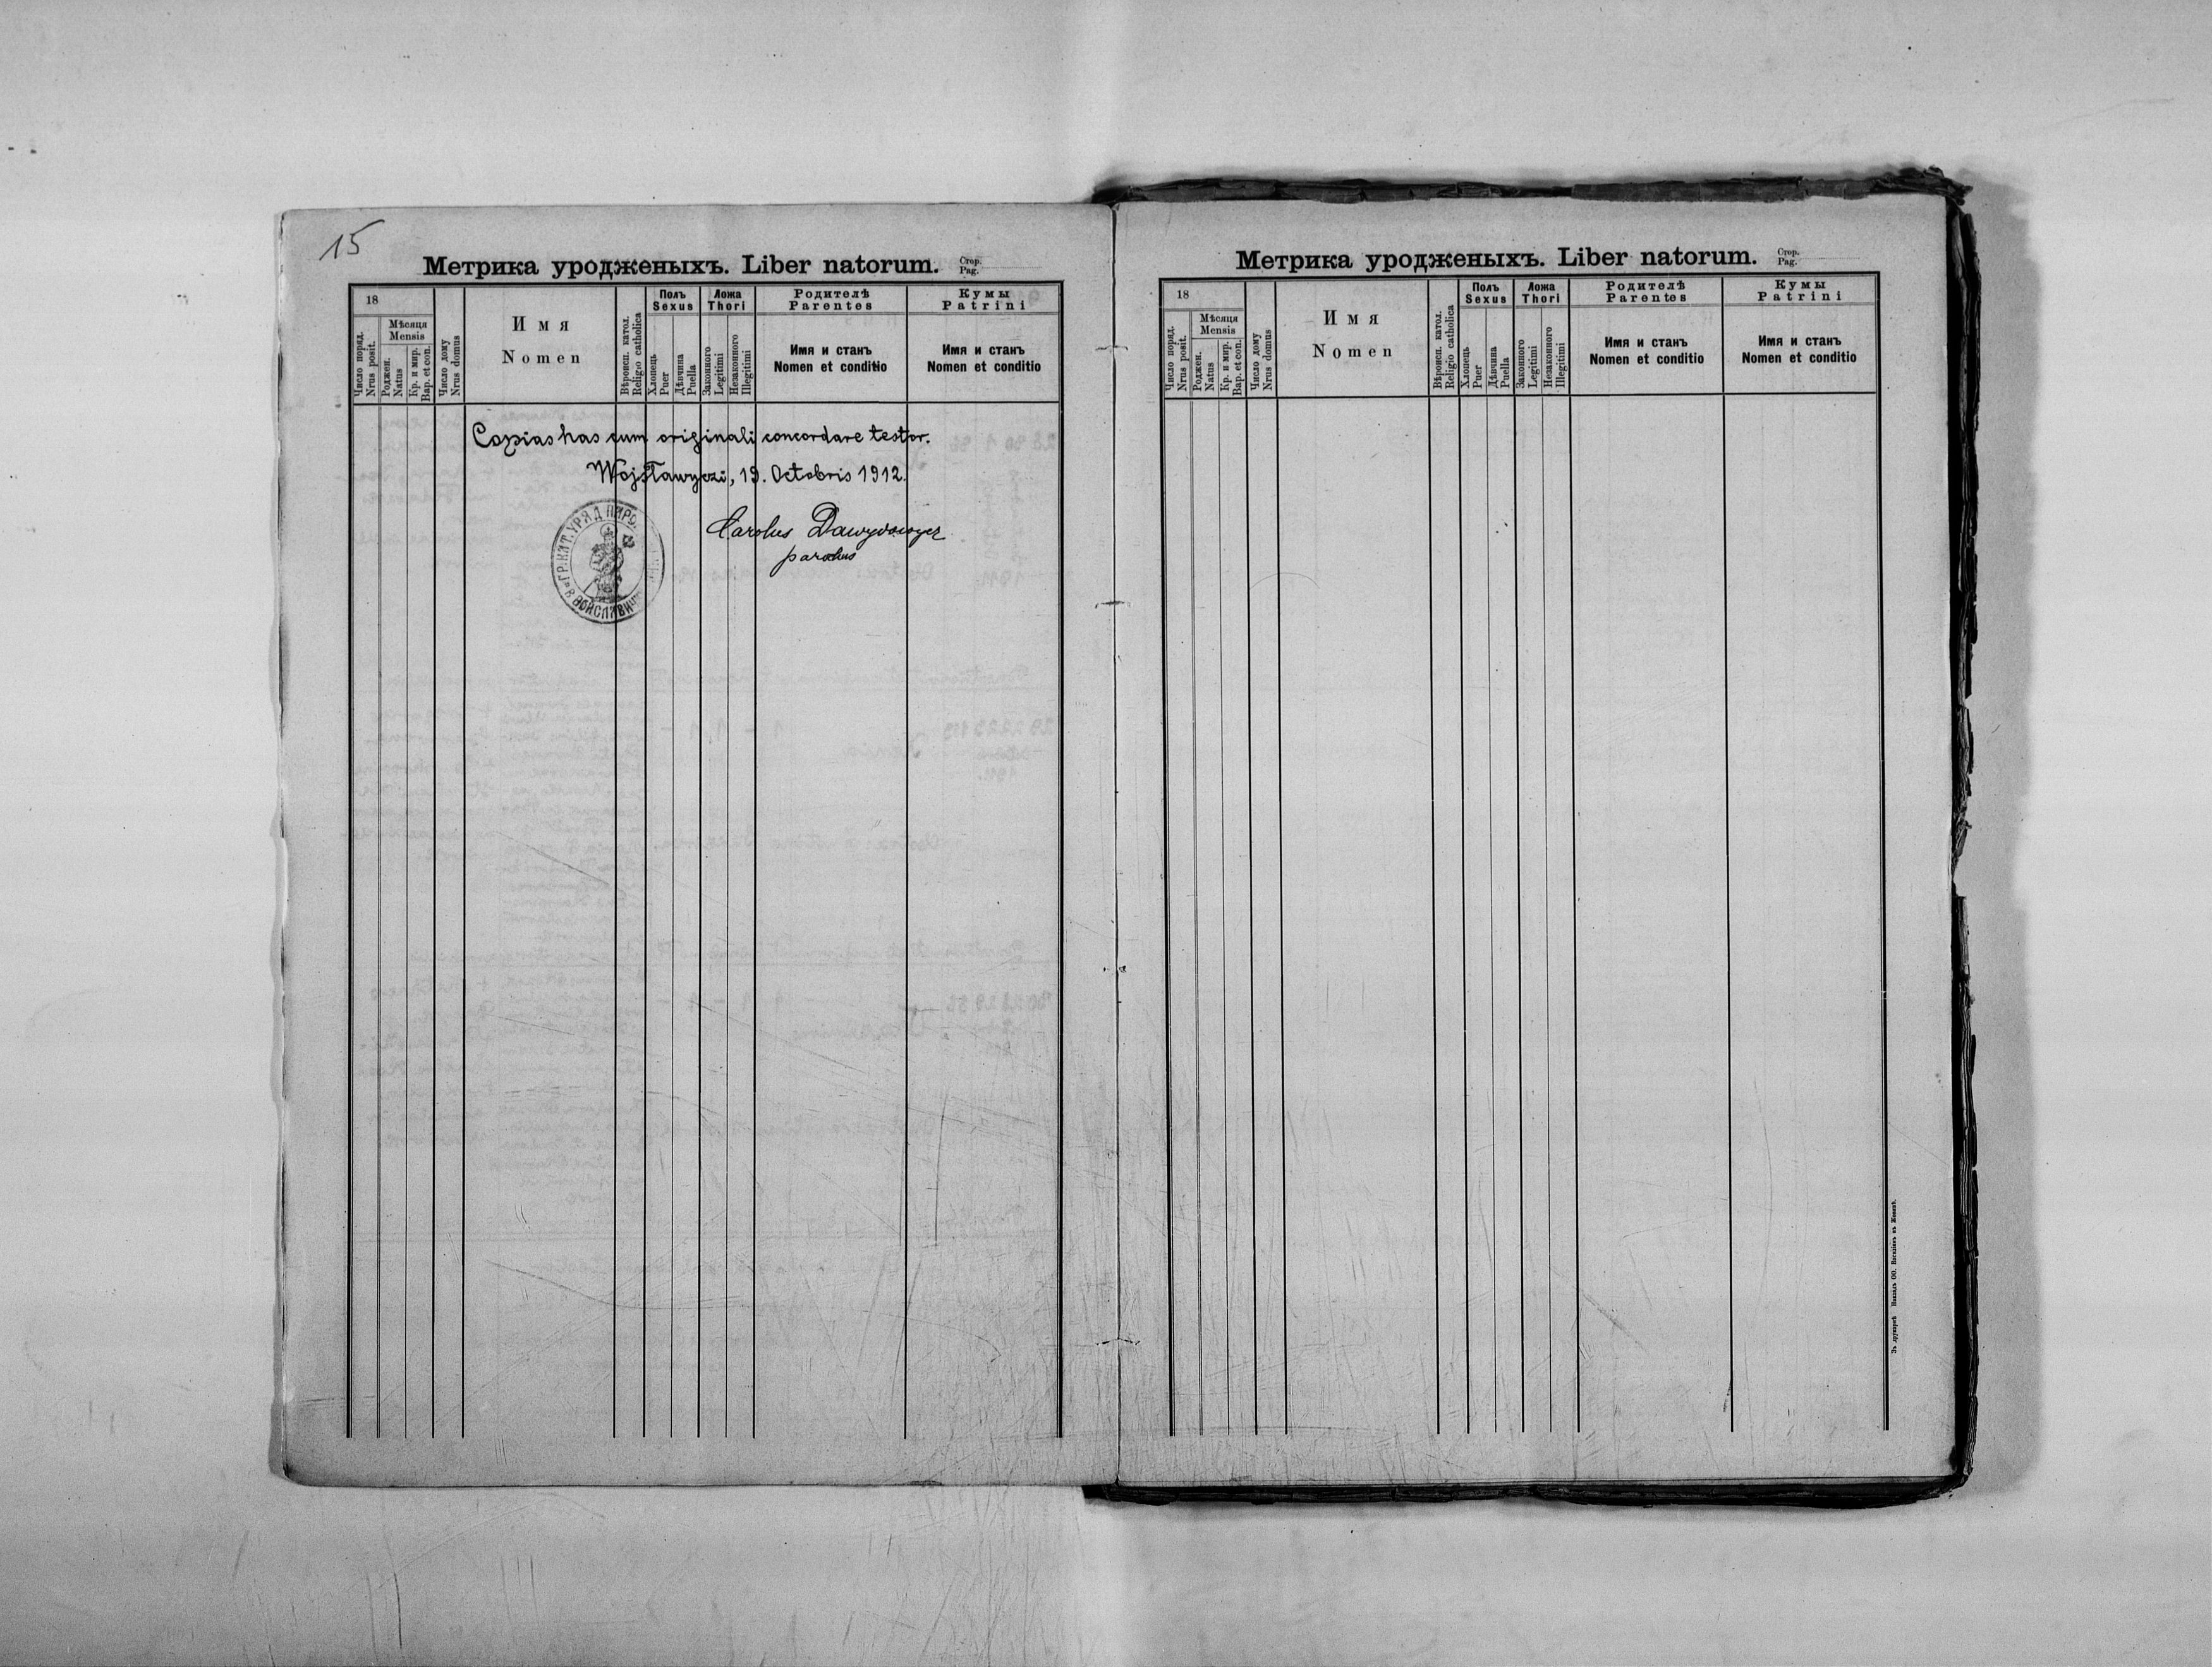 15
Метрика уродженыхъ. Liber natorum. Стор. Pag.
18
Число поряд.
Nrus posit.
Мѣсяця
Mensis
Роджен.
Natus
Кр. и мир.
Bap. et con.
Число дому
Nrus domus
Имя
Nomen
Вѣроисп. катол.
Religio catholica
Полъ
Sexus
Хлопець
Puer
Дѣвчина
Puella
Ложа
Thori
Законного
Legitimi
Незаконного
Illegitimi
Родителѣ
Parentes
Имя и станъ
Nomen et conditio
Кумы
Patrini
Имя и станъ
Nomen et conditio
Copias has cum originali concordare testor.
Wojsławyczi, 19. Octobris 1912.
Carolus Dawydowycz
parochus
ГР.КАТ. УРЯД ПАРО
В ВОИСЛАВИЧ
Метрика уродженыхъ. Liber natorum. Стор. Pag.
18
Число поряд.
Nrus posit.
Мѣсяця
Mensis
Роджен.
Natus
Кр. и мир.
Bap. et con.
Число дому
Nrus domus
Имя
Nomen
Вѣроисп. катол.
Religio catholica
Полъ
Sexus
Хлопець
Puer
Дѣвчина
Puella
Ложа
Thori
Законного
Legitimi
Незаконного
Illegitimi
Родителѣ
Parentes
Имя и станъ
Nomen et conditio
Кумы
Patrini
Имя и станъ
Nomen et conditio
Зъ друкарнѣ ОО. Василіянъ въ Жовквѣ.